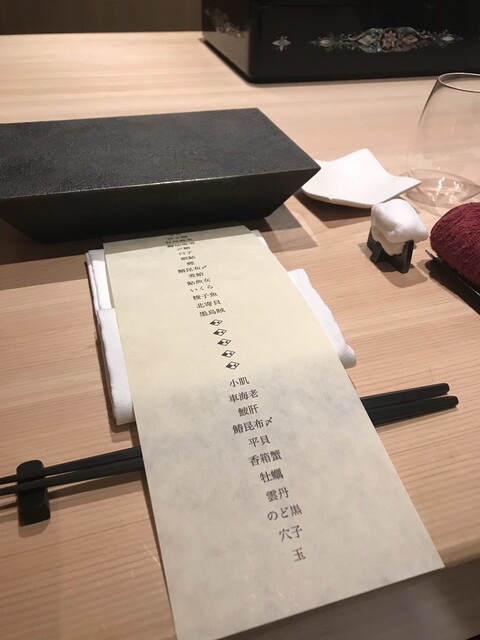 〆鯖
白子
鰹
鰆昆布〆
煮蛤
鮎魚女
いくら
梭子魚
北寄貝
墨烏賊
小肌
車海老
鮟肝
鰆昆布〆
平貝
香箱蟹
牡蠣
雲丹
のど黒
穴子
玉